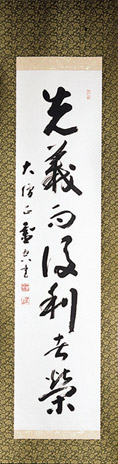 先義而後利者榮
大僧正